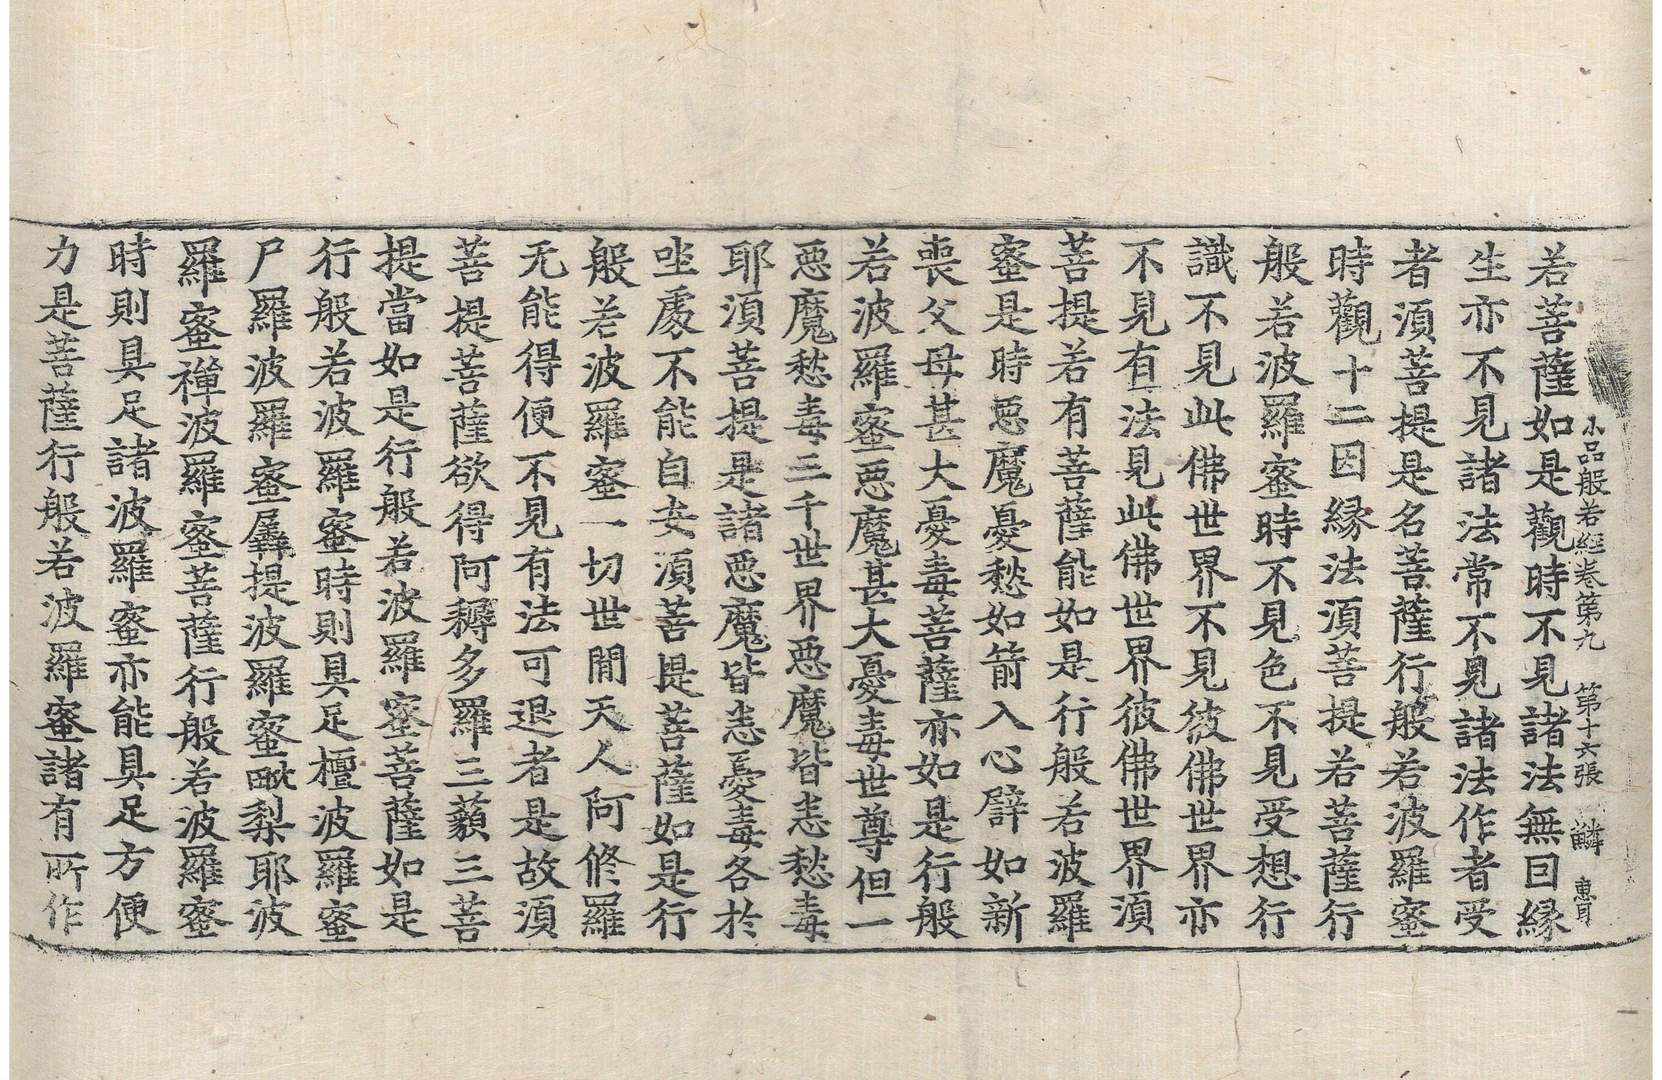 小品般若經卷第九 第十六張 鱗
若菩薩如是觀時不見諸法無因緣
生亦不見諸法常不見諸法作者受
者湏菩提是名菩薩行般若波羅蜜
時觀十二因緣法湏菩提若菩薩行
般若波羅蜜時不見色不見受想行
識不見此佛世界不見彼佛世界亦
不見有法見此佛世界彼佛世界湏
菩提若有菩薩能如是行般若波羅
蜜是時惡魔憂愁如箭入心譬如新
喪父母甚大憂毒菩薩亦如是行般
若波羅蜜惡魔甚大憂毒世尊但一
惡魔愁毒三千世界惡魔皆恚愁毒
耶湏菩提是諸惡魔皆恚憂毒各於
坐處不能自安湏菩提菩薩如是行
般若波羅蜜一切世閒天人阿修羅
无能得便不見有法可退者是故湏
菩提菩薩欲得阿耨多羅三藐三菩
提當如是行般若波羅蜜菩薩如是
行般若波羅蜜時則具足檀波羅蜜
尸羅波羅蜜羼提波羅蜜毗梨耶波
羅蜜禪波羅蜜菩薩行般若波羅蜜
時則具足諸波羅蜜亦能具足方便
力是菩薩行般若波羅蜜諸有所作